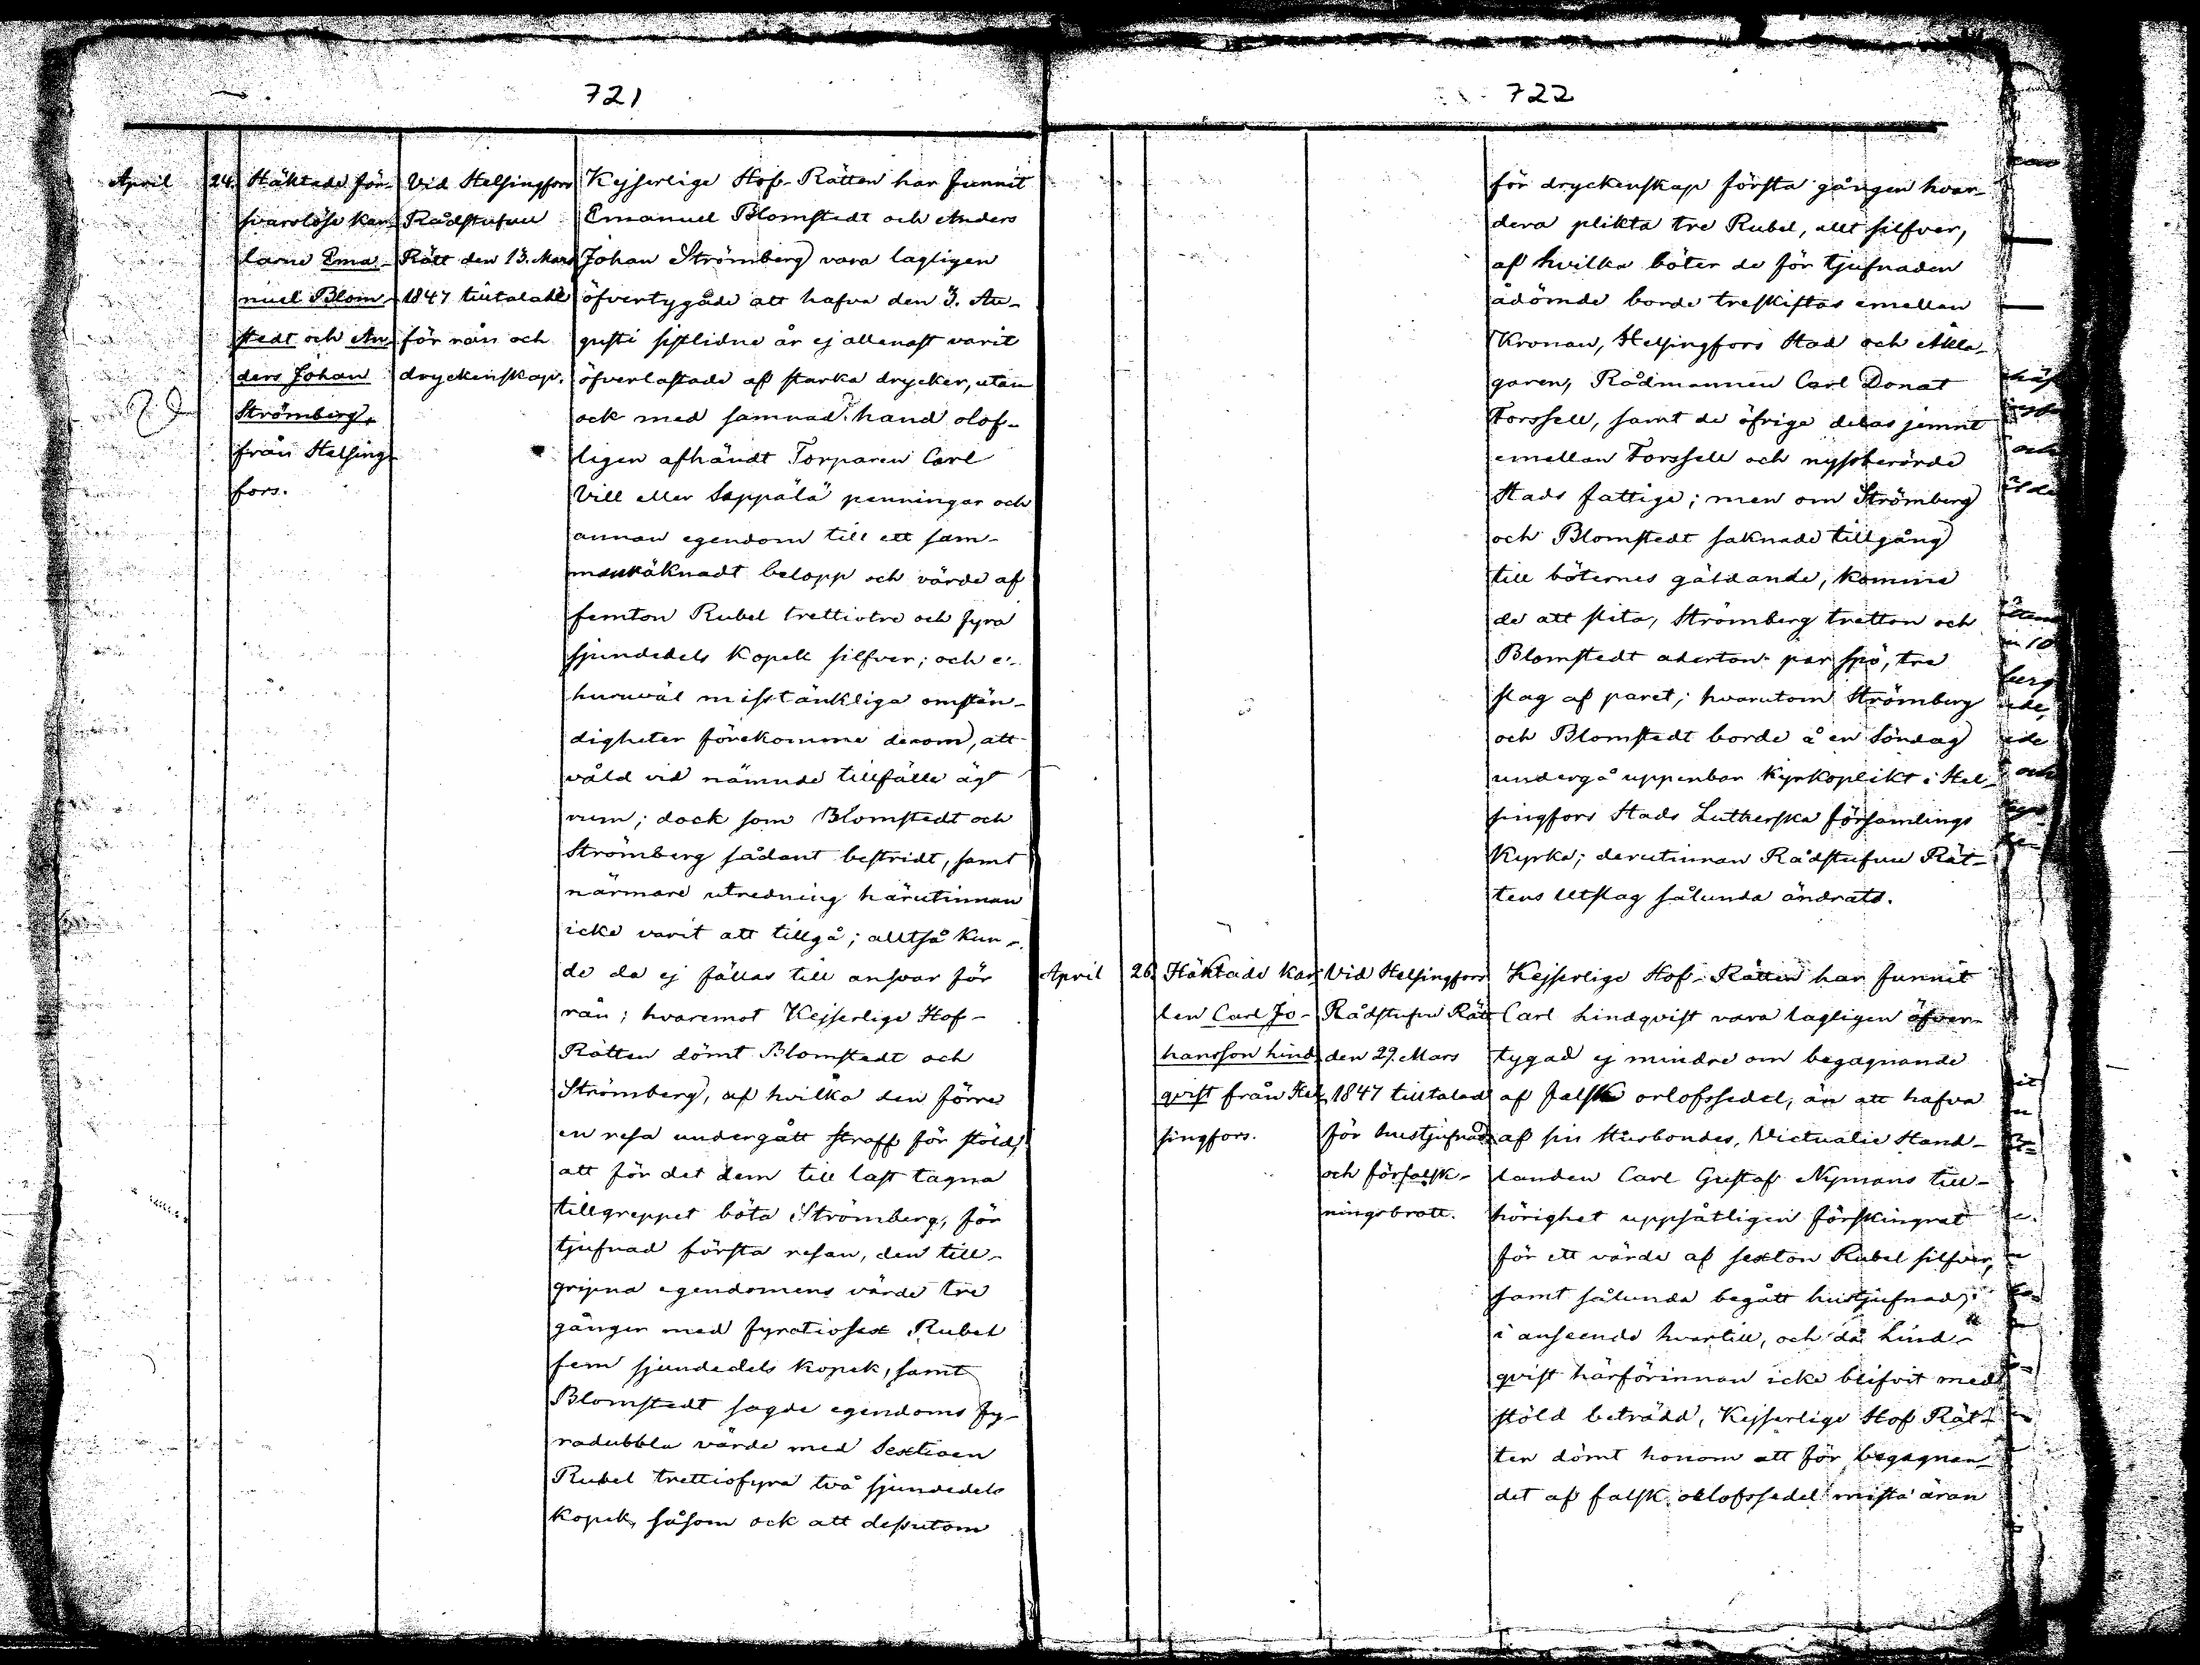 721
April
24.
Häktade för-
svarslöse kar-
larne Ema-
nuel Blom-
stedt och An-
ders Johan
Strömberg,
från Helsing-
fors.
Vid Helsingfors
Rådstufvu
Rätt den 13. Mars
1847 tilltalade
för rån och
dryckenskap.
Kejserlige Hof-Rätten har funnit
Emanuel Blomstedt och Anders
Johan Strömberg vara lagligen
öfvertygade att hafva den 3. Au-
gusti sistlidne år ej allenast varit
öfverlastade af starka drycker, utan
ock med samnad hand olof-
ligen afhändt Torparen Carl
Vill eller Seppälä penningar och
annan egendom till ett sam-
manräknadt belopp och värde af
femton Rubel trettiotre och fyra
sjundedels kopek silfver; och e-
huruväl misstänkliga omstän-
digheter förekomme derom, att
våld vid nämnde tillfälle ägt
rum; dock som Blomstedt och
Strömberg sådant bestridt, samt
närmare utredning härutinnan
icke varit att tillgå; alltså kun-
de de ej fällas till ansvar för
rån; hvaremot Kejserlige Hof-
Rätten dömt Blomstedt och
Strömberg, af hvilka den förre
en resa undergått straff för stöld,
att för det dem till last tagna
tillgreppet böta Strömberg, för
tjufnad första resan, den till-
gripna egendomens värde tre
gånger med fyratiosex Rubel
fem sjundedels kopek, samt
Blomstedt sagde egendoms fy-
radubbla värde med Sextioen
Rubel trettiofyra två sjundedels
kopek, såsom ock att dessutom
722
för dryckenskap första gången hvar-
dera plikta tre Rubel, allt silfver,
af hvilka böter de för tjufnaden
ådömde borde treskiftas emellan
Kronan, Helsingfors Stad och Åkla-
garen, Rådmannen Carl Donat
Forssell, samt de öfrige delas jemnt
emellan Forssell och nyssberörde
Stads fattige; men om Strömberg
och Blomstedt saknade tillgång
till böternes gäldande, komme
de att slita, Strömberg tretton och
Blomstedt aderton par spö, tre
slag af paret; hvarutom Strömberg
och Blomstedt borde å en Söndag
undergå uppenbar kyrkoplikt i Hel-
singfors Stads Lutherska församlings
Kyrka; derutinnan Rådstufvu Rät-
tens Utslag sålunda ändrats.
April
26.
Häktade Kar-
len Carl Jo-
hansson Lind-
qvist från Hel-
singfors.
Vid Helsingfors
Rådstufvu Rätt
den 29. Mars
1847 tilltalad
för hustjufnad
och förfalsk-
ningsbrott.
Kejserlige Hof-Rätten har funnit
Carl Lindqvist vara lagligen öfver-
tygad ej mindre om begagnande
af falsk orlofssedel, än att hafva
af sin Husbondes, Victualie Hand-
landen Carl Gustaf Nymans till-
hörighet uppsåtligen förskingrat
för ett värde af sexton Rubel silfver,
samt sålunda begått hustjufnad;
i anseende hvartill, och då Lind-
qvist härförinnan icke blifvit med
stöld beträdd, Kejserlige Hof Rät-
ten dömt honom att för begagnan-
det af falsk orlofssedel mista äran